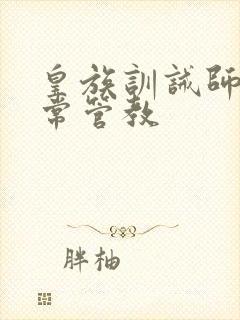 皇族訓誡師
常管教
胖柚